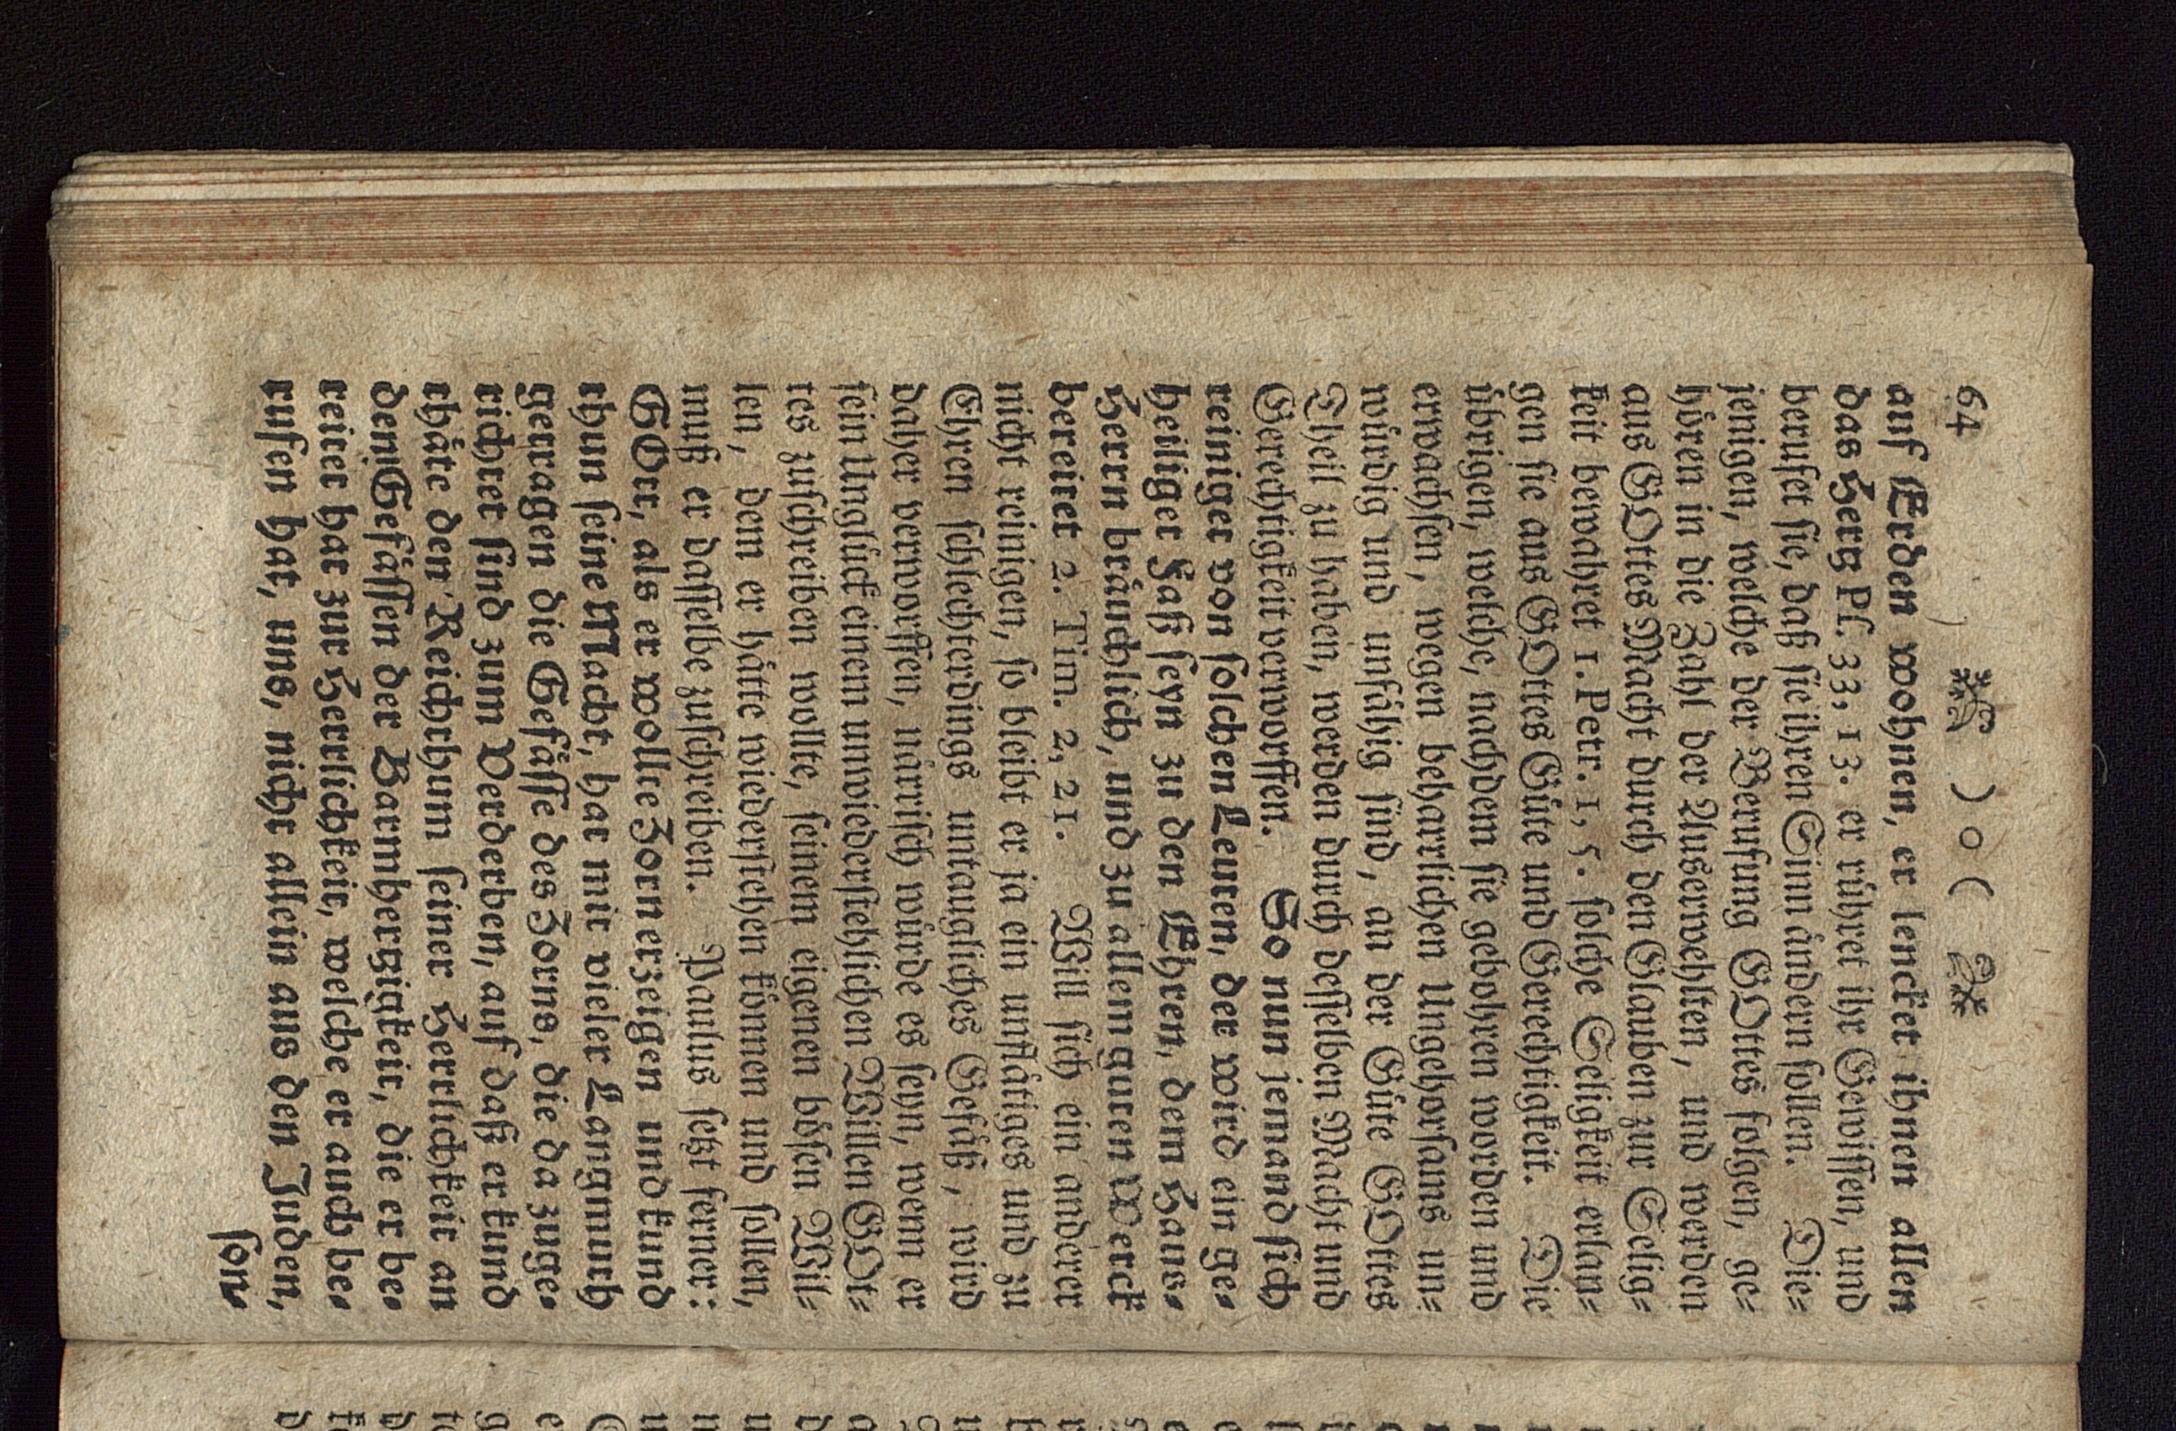 64 ) o (
auf Erden wohnen, er lencket ihnen allen
das Hertz Ps. 33, 13. er rühret ihr Gewissen, und
berufet sie, daß sie ihren Sinn ändern sollen. Die=
jenigen, welche der Berufung GOttes folgen, ge=
hören in die Zahl der Auserwehlten, und werden
aus GOttes Macht durch den Glauben zur Selig=
keit bewahret 1. Petr. 1, 5. solche Seligkeit erlan=
gen sie aus GOttes Güte und Gerechtigkeit. Die
übrigen, welche, nachdem sie gebohren worden und
erwachsen, wegen beharrlichen Ungehorsams un=
würdig und unfähig sind, an der Güte GOttes
Theil zu haben, werden durch desselben Macht und
Gerechtigkeit verworffen. So nun jemand sich
reiniget von solchen Leuten, der wird ein ge=
heiliget Faß seyn zu den Ehren, dem Haus=
Herrn bräuchlich, und zu allem guten Werck
bereitet 2. Tim. 2, 21. Will sich ein anderer
nicht reinigen, so bleibt er ja ein unflätiges und zu
Ehren schlechterdings untaugliches Gefäß, wird
daher verworffen, närrisch würde es seyn, wenn er
sein Unglück einem unwiederstehlichen Willen GOt=
tes zuschreiben wolte, seinem eigenen bösen Wil=
len, dem er hätte wiederstehen können und sollen,
muß er dasselbe zuschreiben. Paulus setzt ferner:
GOtt, als er wolte Zorn erzeigen und kund
thun seine Macht, hat mit vieler Langmuth
getragen die Gefässe des Zorns, die da zuge=
richtet sind zum Verderben, auf daß er kund
thäte den Reichthum seiner Herrlichkeit an
den Gefässen der Barmhertzigkeit, die er be=
reitet hat zur Herrlichkeit, welche er auch be=
rufen hat, uns, nicht allein aus den Juden,
son=